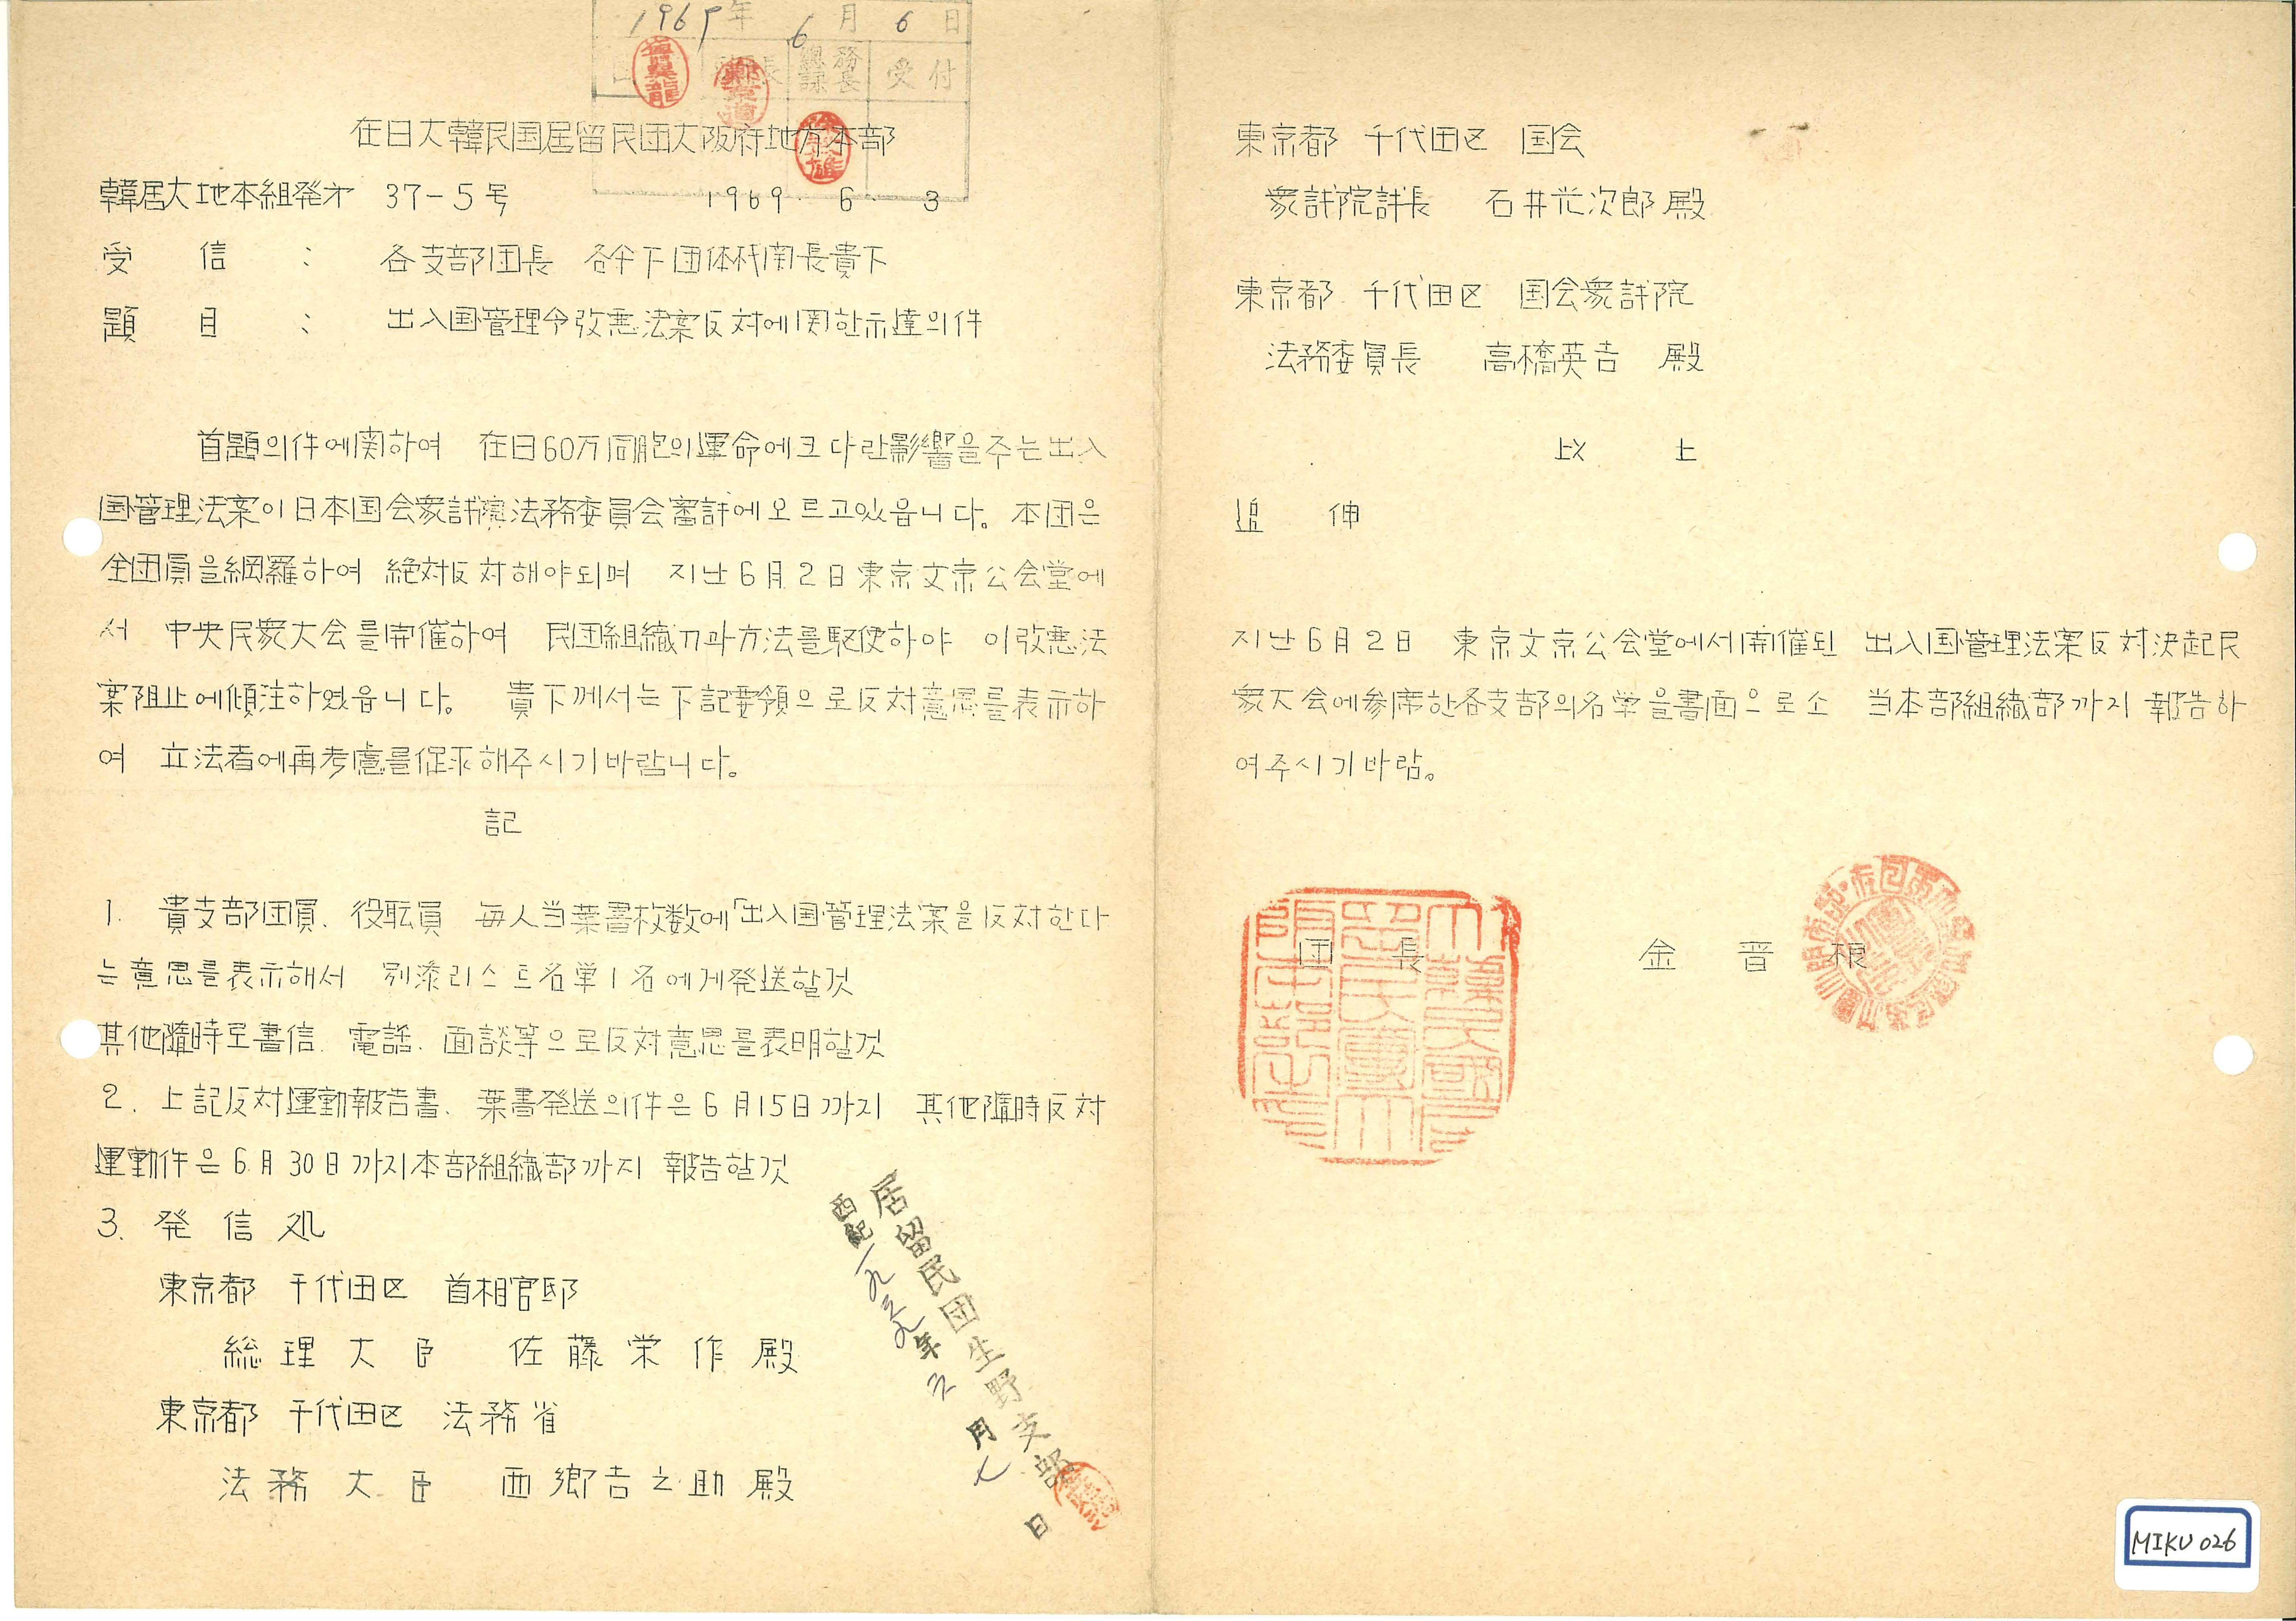 1969年 6月 6日
総務課長 受付
在日大韓民国居留民団大阪府地方本部
韓居大地本組発才 37-5号 1969. 6. 3
受 信 : 各支部団長 各傘下団体機関長貴下
題 目 : 出入国管理令改悪法案反対에関한示達의件
首題의件에関하여 在日60万同胞의運命에크다란影響을주는出入
国管理法案이日本国会衆議院法務委員会審議에오르고있읍니다。本団은
全団員을網羅하여 絶対反対해야되며 지난6月2日東京文京公会堂에
서 中央民衆大会를開催하여 民団組織力과方法를駆使하야 이改悪法
案阻止에傾注하였읍니다。 貴下께서는下記要領으로反対意思를表示하
여 立法者에再考慮를促求해주시기바랍니다。
記
1. 貴支部団員、役職員 毎人当葉書枚数에「出入国管理法案을反対한다
는意思를表示해서 別添리스트名単1名에게発送할것
其他随時로書信、電話、面談等으로反対意思를表明할것
2. 上記反対運動報告書、葉書発送의件은6月15日까지 其他随時反対
運動件은6月30日까지本部組織部까지 報告할것
3. 発信処
東京都 千代田区 首相官邸
総理大臣 佐藤栄作殿
東京都 千代田区 法務省
法務大臣 西郷吉之助殿
居留民団生野支部
西紀一九六九年六月七日
東京都 千代田区 国会
衆議院議長 石井光次郎殿
東京都 千代田区 国会衆議院
法務委員長 高橋英吉 殿
以 上
追 伸
지난6月2日 東京文京公会堂에서開催된 出入国管理法案反対決起民
衆大会에参席한各支部의名単을書面으로소 当本部組織部까지 報告하
여주시기바람。
団 長 金 晋 根
MIKU 026